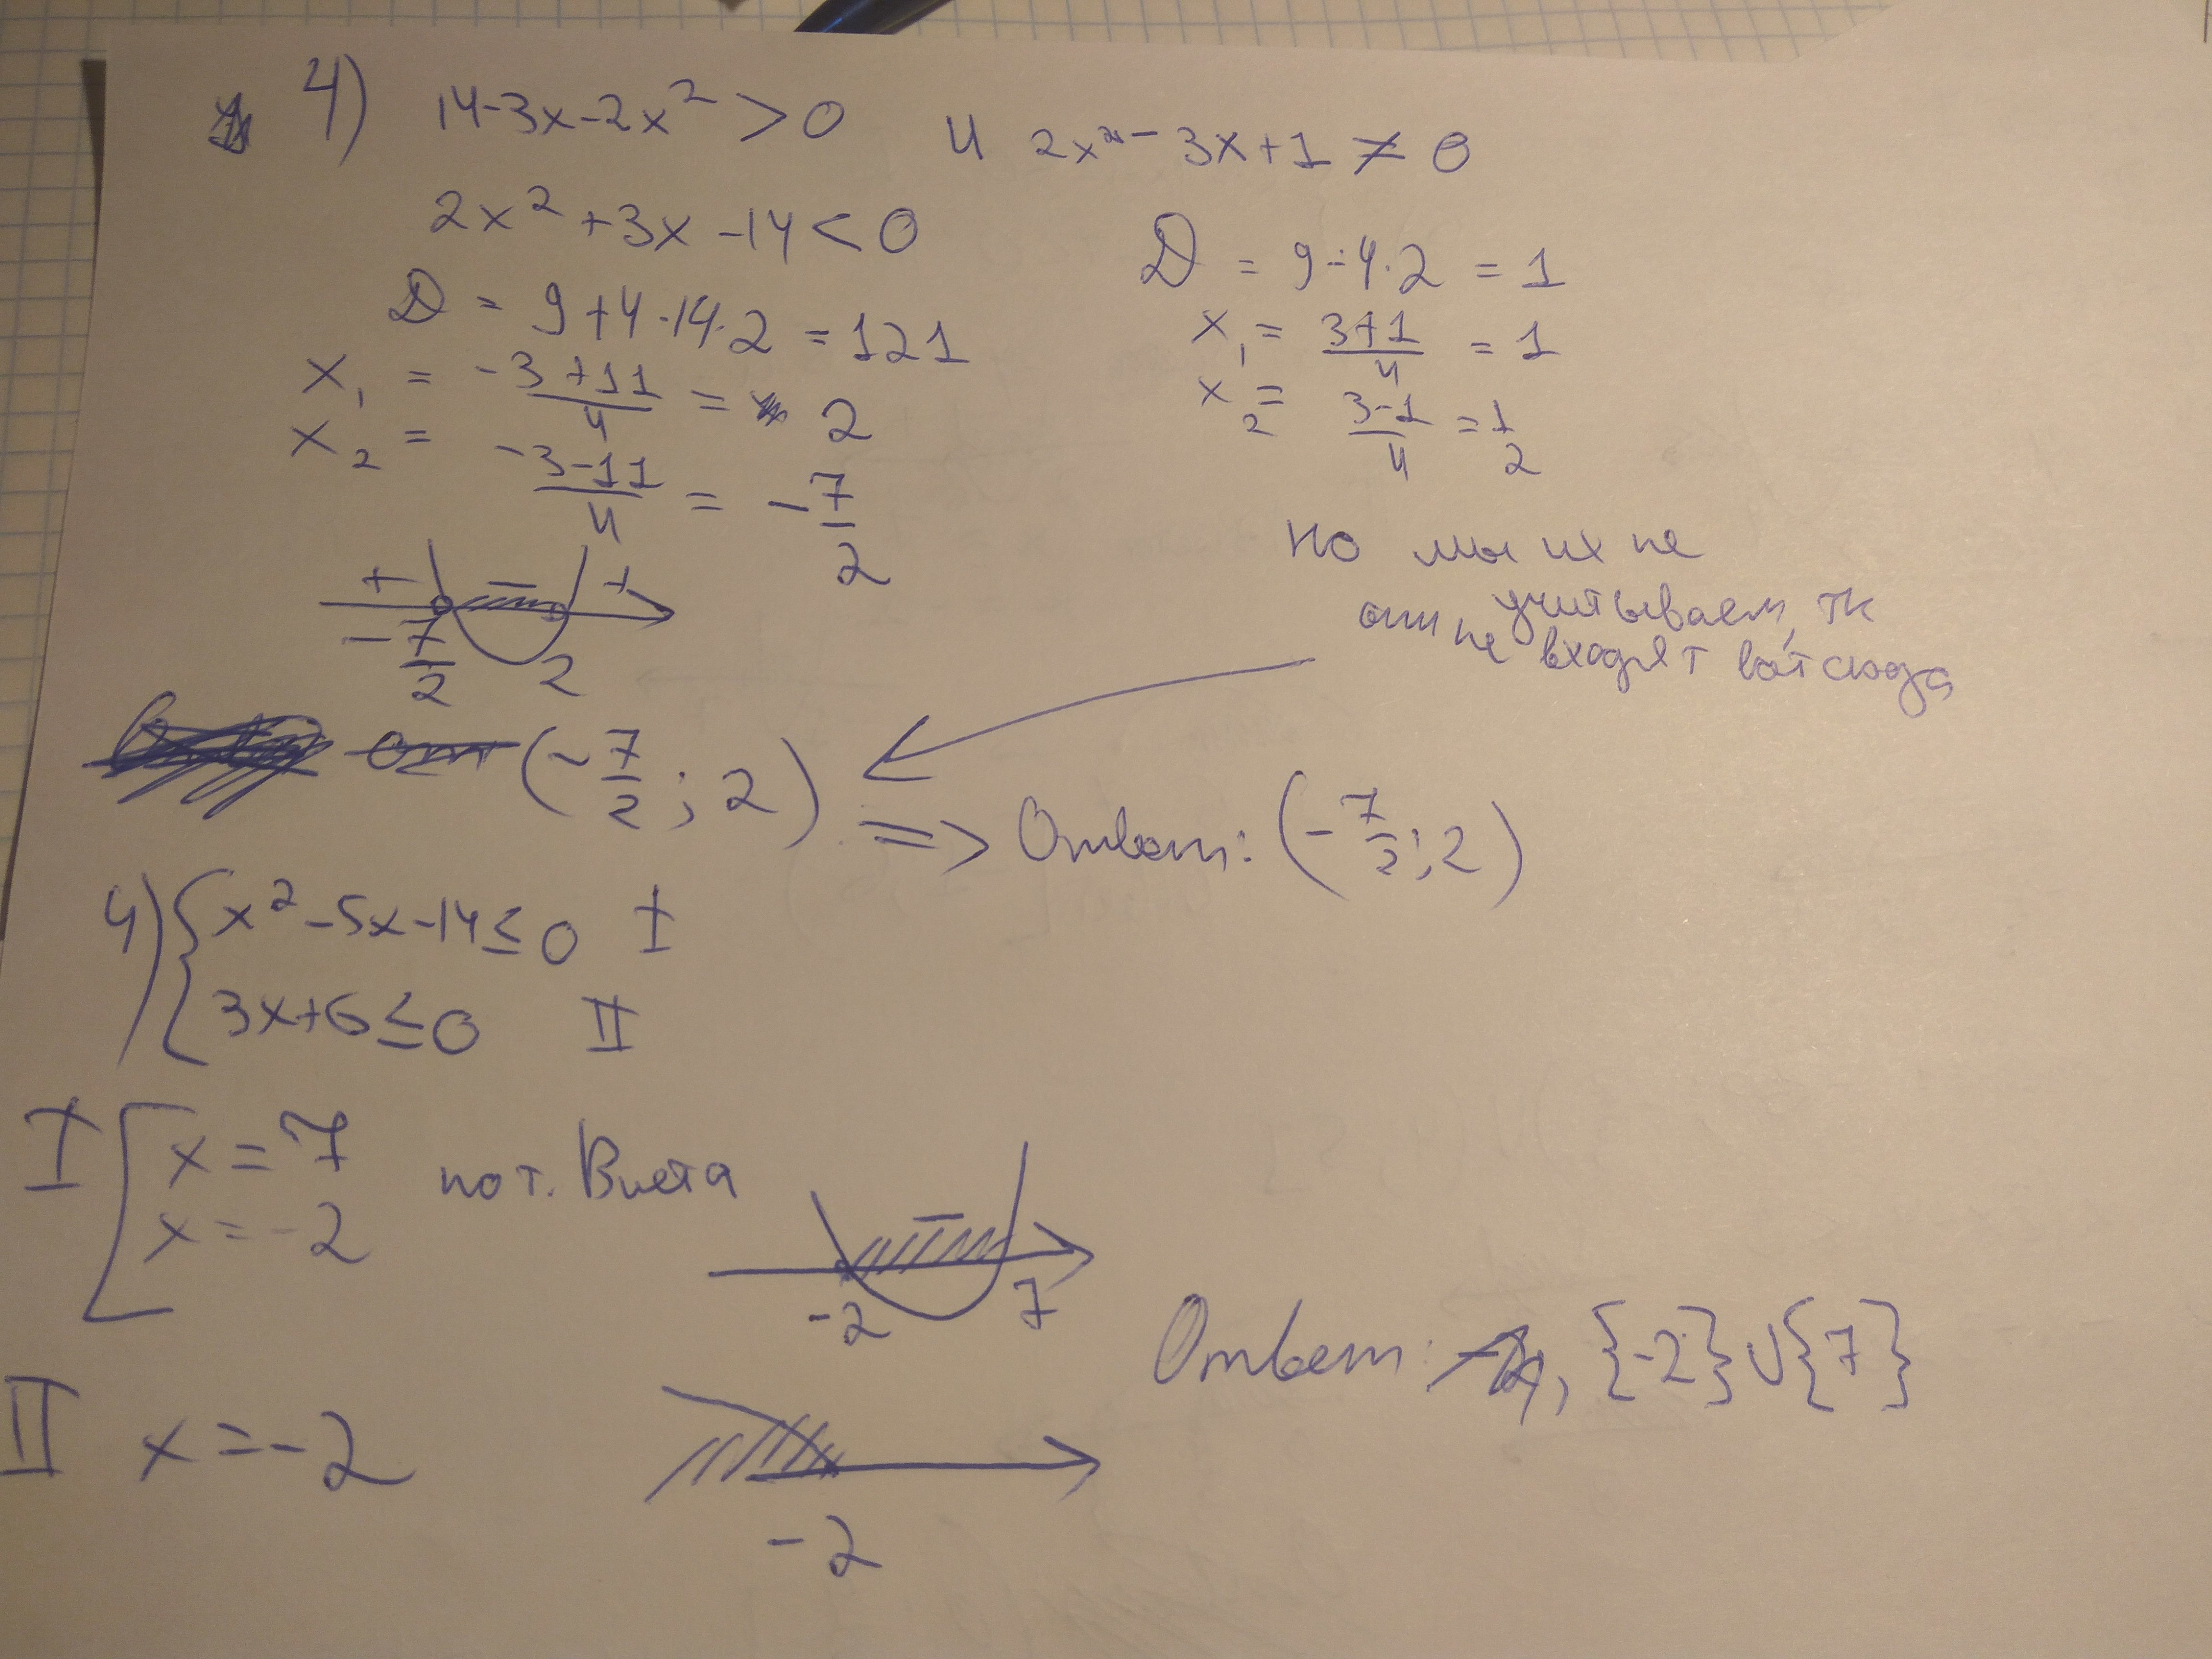 4) 14-3x-2x² > 0 и 2x² - 3x + 1 ≠ 0
2x² + 3x - 14 < 0
D = 9 + 4·14·2 = 121
x₁ = (-3+11)/4 = 2
x₂ = (-3-11)/4 = -7/2
D = 9 - 4·2 = 1
x₁ = (3+1)/4 = 1
x₂ = (3-1)/4 = 1/2
+ - +
-7/2 2
Но мы их не
учитываем, тк
они не входят вот сюда
(-7/2; 2) => Ответ: (-7/2; 2)
4) { x² - 5x - 14 ≤ 0 I
3x + 6 ≤ 0 II
I [ x = 7 по т. Виета
x = -2
-
-2 7
Ответ: {-2} ∪ {7}
II x = -2
-2